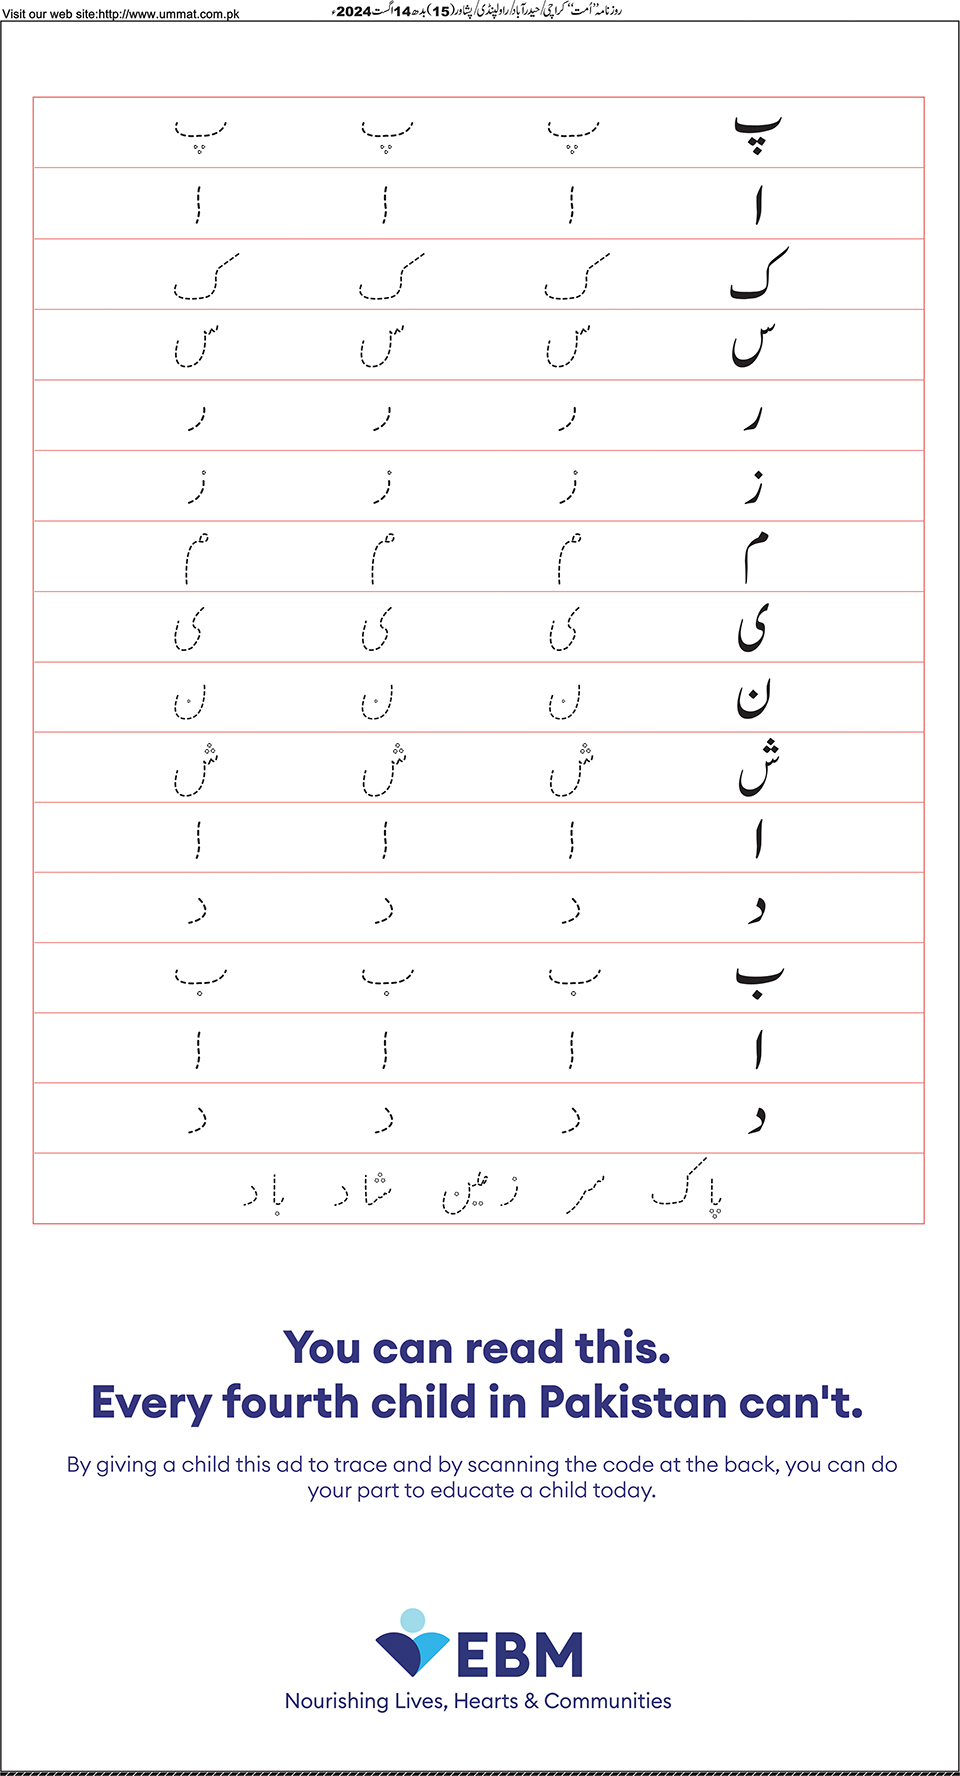 Visit our web site:http://www.ummat.com.pk روزنامہ "امت" کراچی/حیدرآباد/راولپنڈی/پشاور (15) بدھ 14 اگست 2024ء
پ پ پ پ
ا ا ا ا
ک ک ک ک
س س س س
ر ر ر ر
ز ز ز ز
م م م م
ی ی ی ی
ن ن ن ن
ش ش ش ش
ا ا ا ا
د د د د
ب ب ب ب
ا ا ا ا
د د د د
پاک سر زمین شاد باد
You can read this.
Every fourth child in Pakistan can't.
By giving a child this ad to trace and by scanning the code at the back, you can do
your part to educate a child today.
EBM
Nourishing Lives, Hearts & Communities